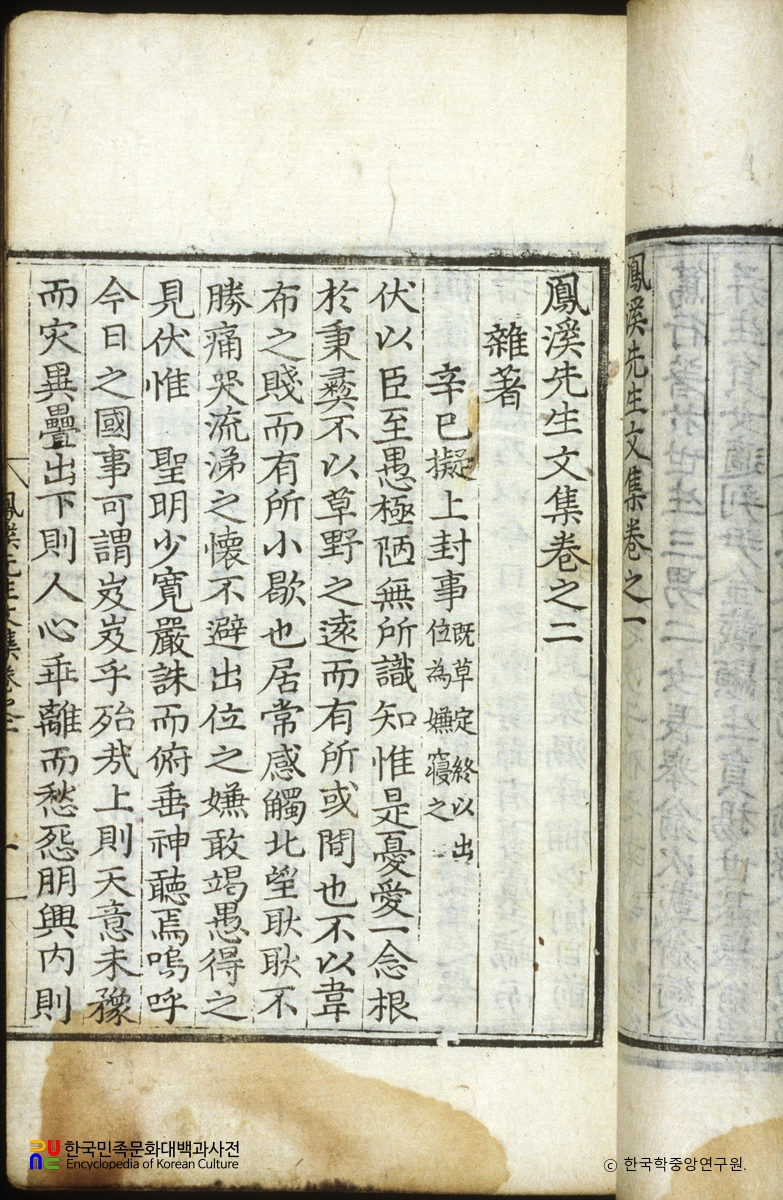 鳳溪先生文集卷之一
鳳溪先生文集卷之二
雜著
辛巳擬上封事 旣草定終以出位為嫌寢之
伏以臣至愚極陋無所識知惟是憂愛一念根
於秉彛不以草野之遠而有所或間也不以韋
布之賤而有所小歇也居常感觸北望耿耿不
勝痛哭流涕之懷不避出位之嫌敢竭愚得之
見伏惟 聖明少寬嚴誅而俯垂神聽焉嗚呼
今日之國事可謂岌岌乎殆㢤上則天意未豫
而灾異疊出下則人心乖離而愁怨朋興内則
한국민족문화대백과사전
Encyclopedia of Korean Culture
ⓒ 한국학중앙연구원.